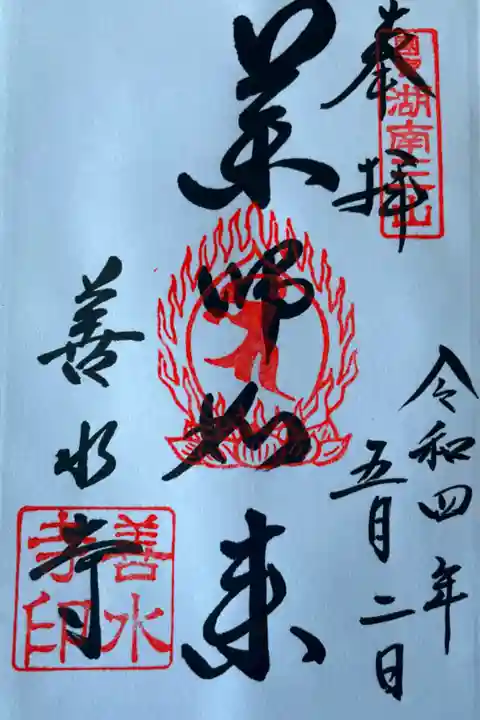 奉拝
湖南三山
令和四年
五月二日
薬師如来
善水寺
善水
寺印